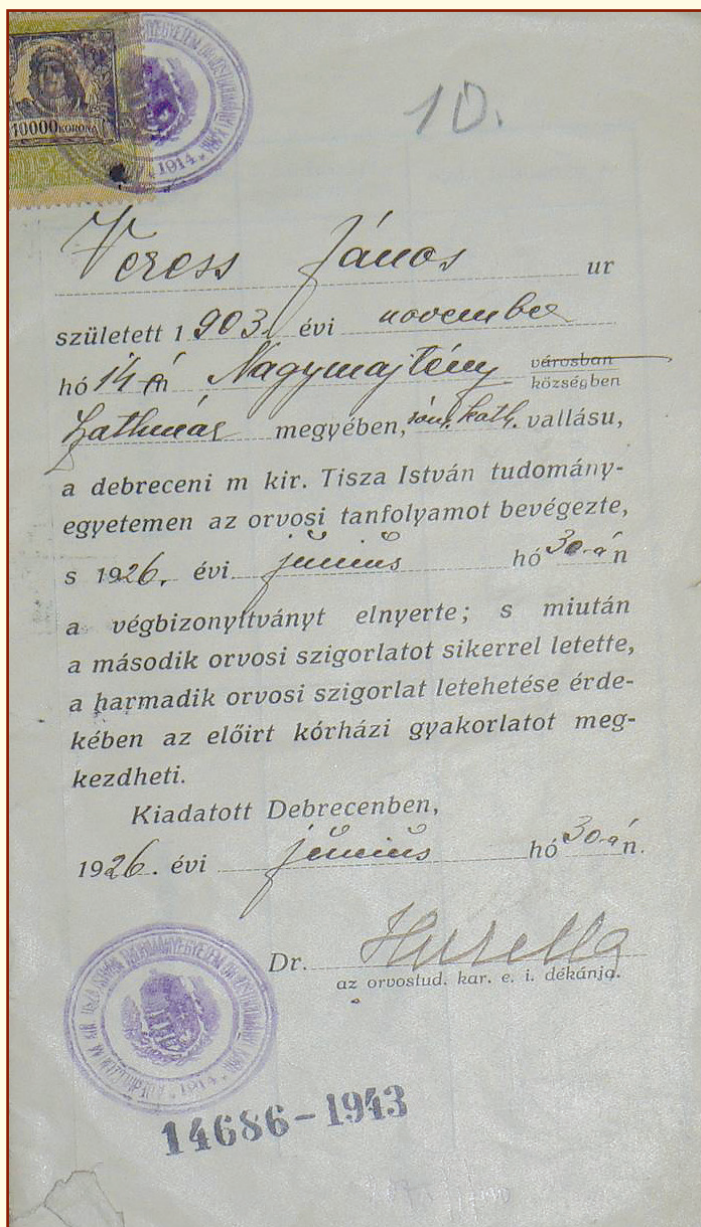 10000 KORONA
1914
10.
Veress János ur
született 1903. évi november
hó 14én Nagymajtény városban
községben
Zathmár megyében, róm. kath. vallásu,
a debreceni m kir. Tisza István tudomány-
egyetemen az orvosi tanfolyamot bevégezte,
s 1926. évi június hó 30-án
a végbizonyítványt elnyerte; s miután
a második orvosi szigorlatot sikerrel letette,
a harmadik orvosi szigorlat letehetése érde-
kében az előirt kórházi gyakorlatot meg-
kezdheti.
Kiadatott Debrecenben,
1926. évi június hó 30-án.
Dr. Huzella
az orvostud. kar. e. i. dékánja.
1914
14686-1943